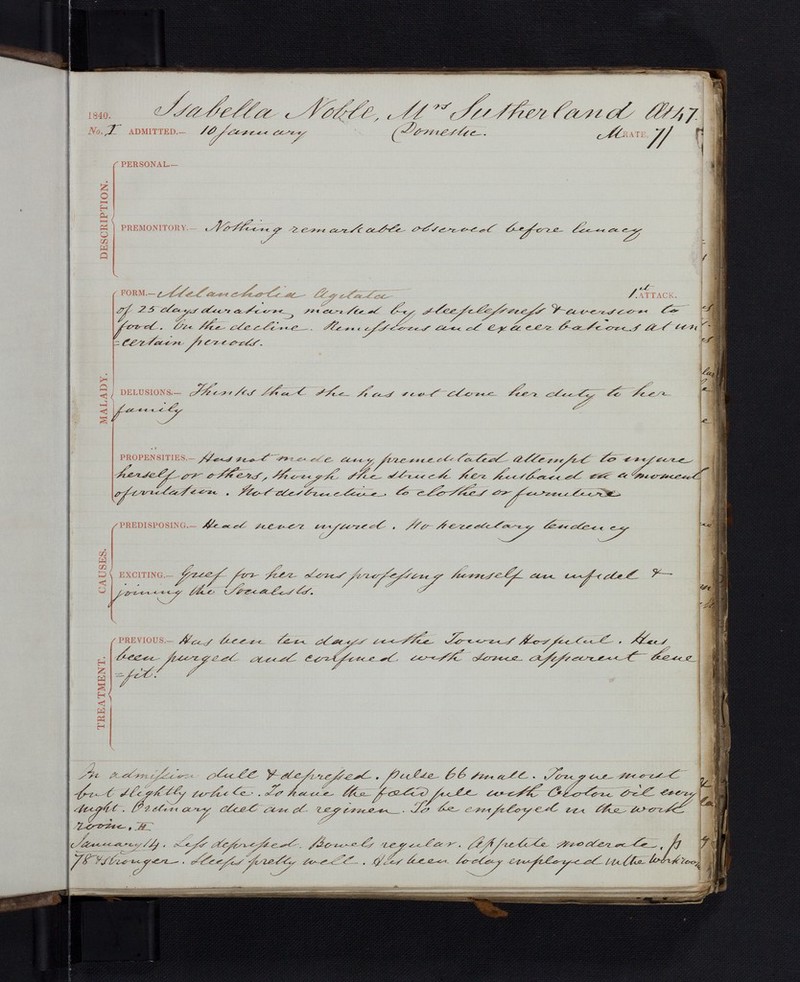 1840. Isabella Noble, Mrs Sutherland Æt 47.
No. I ADMITTED.— 10 January Domestic. RATE. 7/
DESCRIPTION.
PERSONAL.—
PREMONITORY.— Nothing remarkable observed before lunacy
MALADY.
FORM.— Melancholia Agitata 1st ATTACK.
of 25 days duration, marked by sleeplessness & aversion to
food. On the decline. Remissions and exacerbations at un
=certain periods.
DELUSIONS.— Thinks that she has not done her duty to her
family
PROPENSITIES.— Has not made any premeditated attempt to injure
herself or others, though she struck her husband in a moment
of irritation. Not destructive to clothes or furniture
CAUSES.
PREDISPOSING.— Head never injured. No hereditary tendency
EXCITING.— Grief for her sons professing himself an infidel &
joining the Socialists.
TREATMENT.
PREVIOUS.— Has been ten days in the Towns Hospital. Has
been purged and confined with some apparent bene
=fit.
On admission dull & depressed. Pulse 66 small. Tongue moist
but slightly white. To have the fœtid pill with Croton oil every
night. Ordinary diet and regimen. To be employed in the work
room.
January 14. Less depressed. Bowels regular. Appetite moderate. P
78 & stronger. Sleeps pretty well. Has been today employed in the Workroom